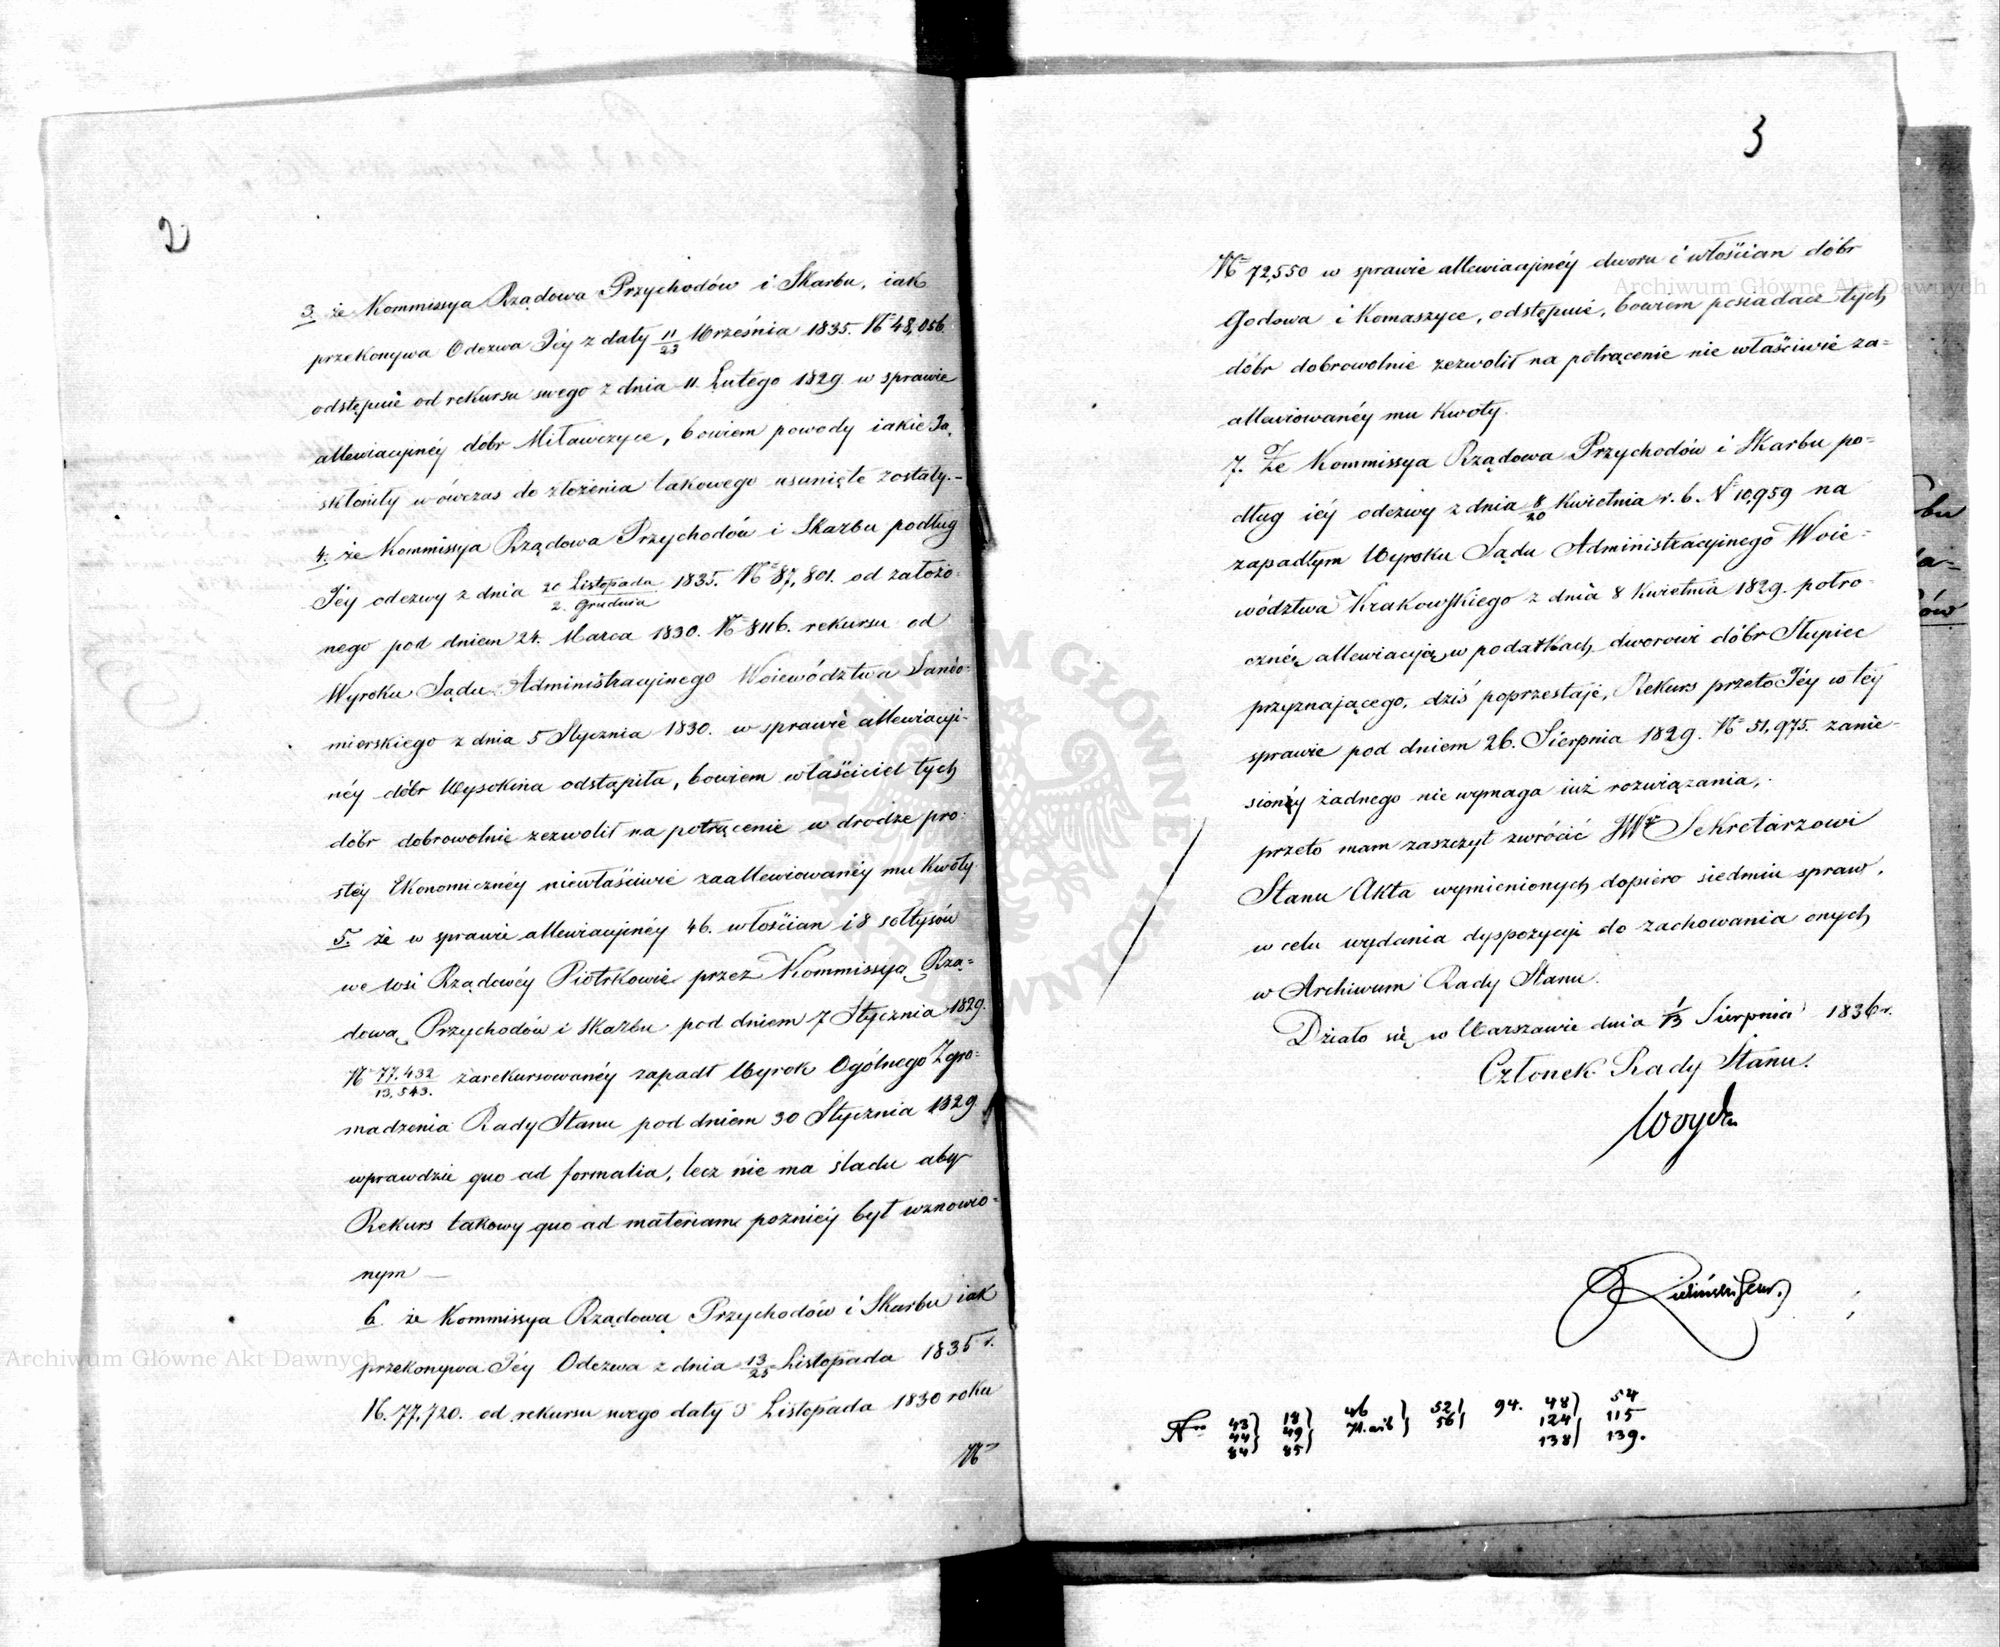 2
3. że Kommissya Rządowa Przychodów i Skarbu, iak
przekonywa Odezwa Jéy z daty 11/23 Września 1835. No 48,056.
odstępuie od rekursu swego z dnia 11 Lutego 1829 w sprawie
allewiacyinéy dóbr Miławczyce, bowiem powody iakie Ją
skłoniły wówczas do złożenia takowego usunięte zostały.-
4. że Kommissya Rządowa Przychodów i Skarbu podług
Jéy odezwy z dnia 20 Listopada/2. Grudnia 1835. No 87,801. od założo-
nego pod dniem 24. Marca 1830. No 8116. rekursu od
Wyroku Sądu Administracyinego Woiewództwa Sando-
mierskiego z dnia 5 Stycznia 1830. w sprawie allewiacyi-
néy dóbr Wysokina odstąpiła, bowiem właściciel tych
dóbr dobrowolnie zezwolił na potrącenie w drodze pro-
stéy Ekonomicznéy niewłaściwie zaallewiowanéy mu Kwoty.
5. że w sprawie allewiacyinéy 46. włościan i 8 sołtysów
we wsi Rządowéy Piotrkowie przez Kommissyą Rzą=
dową Przychodów i Skarbu pod dniem 7 Stycznia 1829.
No 77.432/13,543. zarekursowanéy zapadł Wyrok Ogólnego Zgro=
madzenia Rady Stanu pod dniem 30 Stycznia 1829
wprawdzie quo ad formalia, lecz nie ma śladu aby
Rekurs takowy quo ad materiam poźniéy był wznowio=
nym —
6. że Kommissya Rządowa Przychodów i Skarbu iak
przekonywa Jéy Odezwa z dnia 13/25 Listopada 1835 r.
N. 77,720. od rekursu swego daty 5 Listopada 1830 roku
No
3
No 72,550 w sprawie allewiacyinéy dworu i włościan dóbr
Godowa i Komaszyce, odstępuie, bowiem posiadacz tych
dóbr dobrowolnie zezwolił na potrącenie nie właściwie za=
allewiowanéy mu Kwoty.
7. Że Kommissya Rządowa Przychodów i Skarbu po=
dług iéy odezwy z dnia 8/20 Kwietnia r. b. No 10,959 na
zapadłym Wyroku Sądu Administracyinego Woie=
wództwa Krakowskiego z dnia 8 Kwietnia 1829. potro-
cznéą allewiacyią w podatkach dworowi dóbr Słupiec
przyznającego, dziś poprzestaje, Rekurs przeto Jéy w téy
sprawie pod dniem 26. Sierpnia 1829. No 51,975. zanie-
sionéy żadnego nie wymaga iuż rozwiązania,.
przeto mam zaszczyt zwrócić JW Sekretarzowi
Stanu Akta wymienionych dopiero siedmiu spraw,
w celu wydania dyspozycyi do zachowania onych
w Archiwum Rady Stanu.
Działo się w Warszawie dnia 1/13 Sierpnia 1836 r.
Członek Rady Stanu.
Woyda
Nro 43 18 46 52 94. 48 54
44 49 56 124 115
84 85 138 139.
Archiwum Główne Akt Dawnych
Archiwum Główne Akt Dawnych
ARCHIWUM GŁÓWNE AKT DAWNYCH